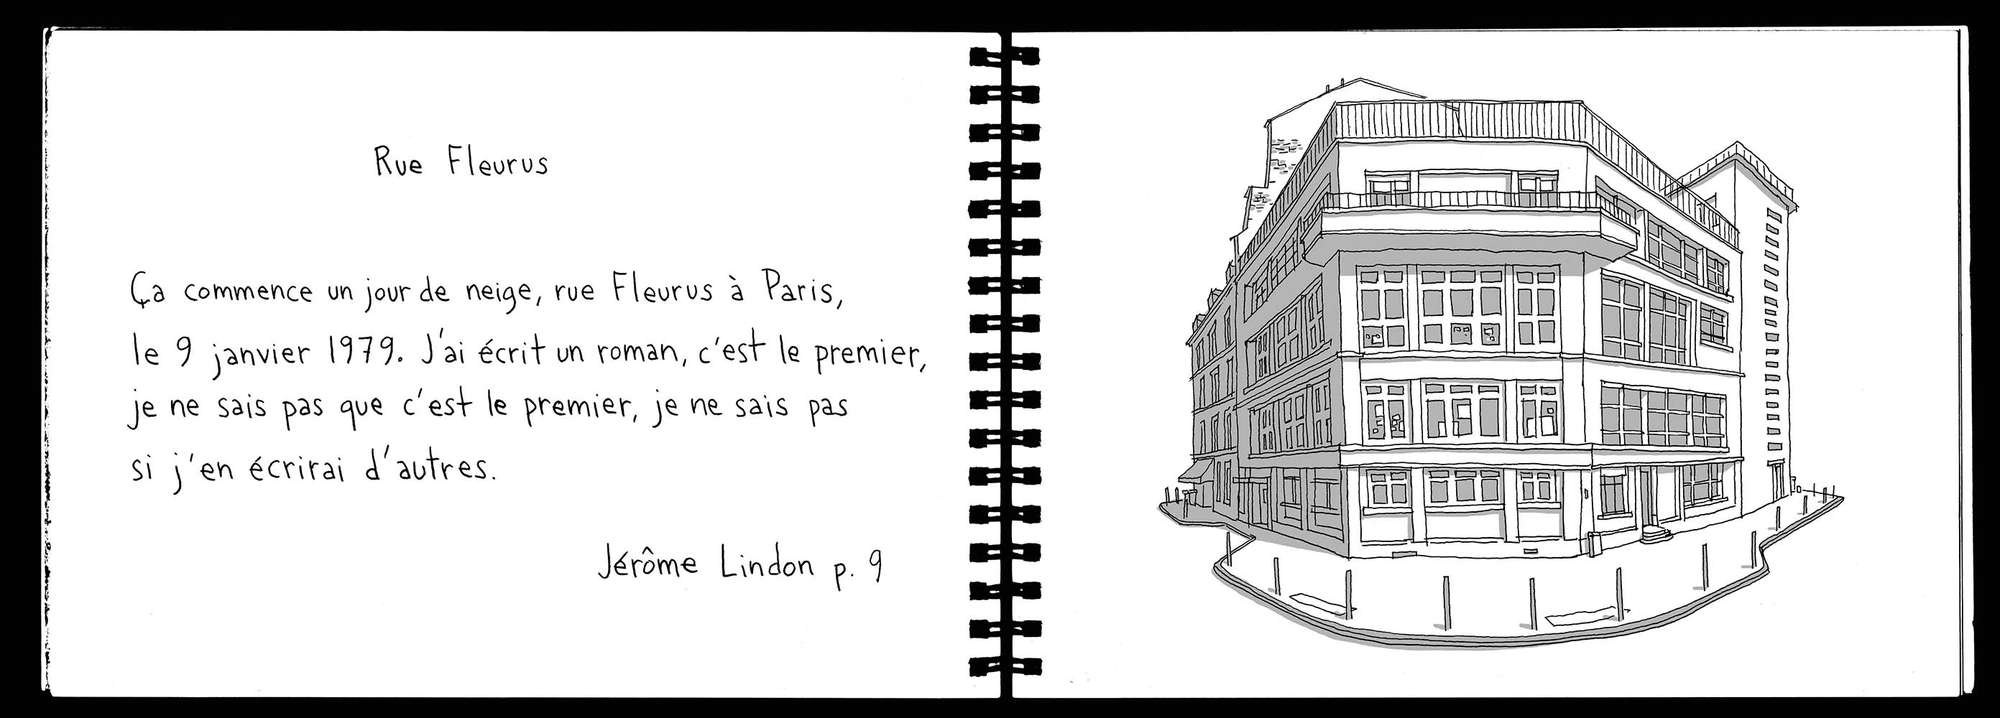 Rue Fleurus
Ça commence un jour de neige, rue Fleurus à Paris,
le 9 janvier 1979. J'ai écrit un roman, c'est le premier,
je ne sais pas que c'est le premier, je ne sais pas
si j'en écrirai d'autres.
Jérôme Lindon p. 9